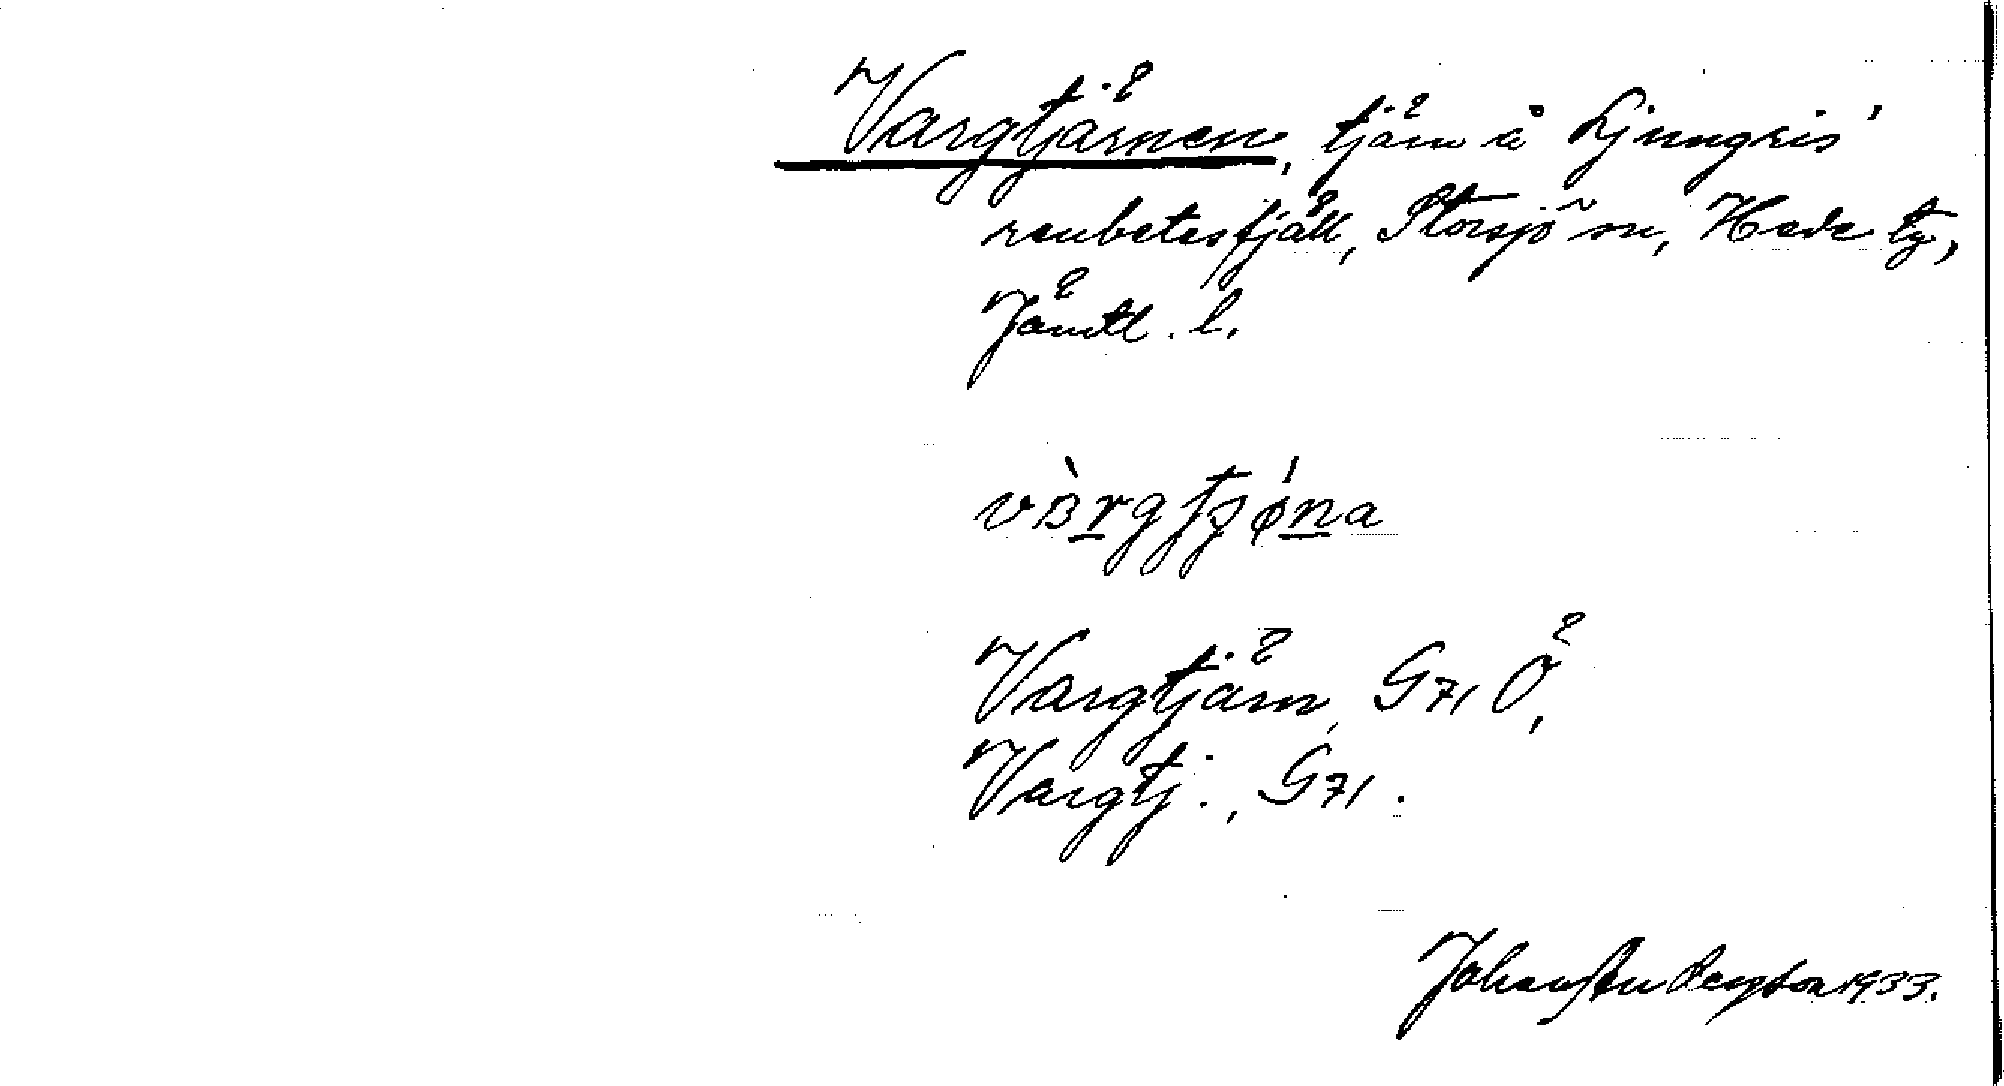 Vargtjärnen, tjärn å Ljungris'
renbetesfjäll, Storsjö sn, Hede tg,
Jämtl. l.
Vargtjärn, G71 Ö,
Vargtj., G71.
1933.